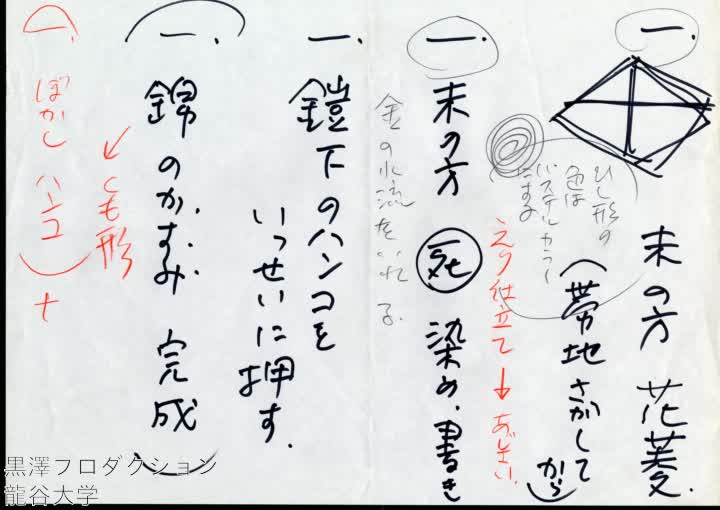 一、
末の方 花菱、
(帯地さがして
から)
ひし形の
色は
パステルカラー
にする
えり仕立て→あじさい、
一、
末の方 死 染め、書き
金の水流をいれる
一、
鎧下のハンコを
いっせいに押す、
一、
錦のかすみ 完成
くも形
一、
ぼかし ハンコ
黒澤プロダクション
龍谷大学